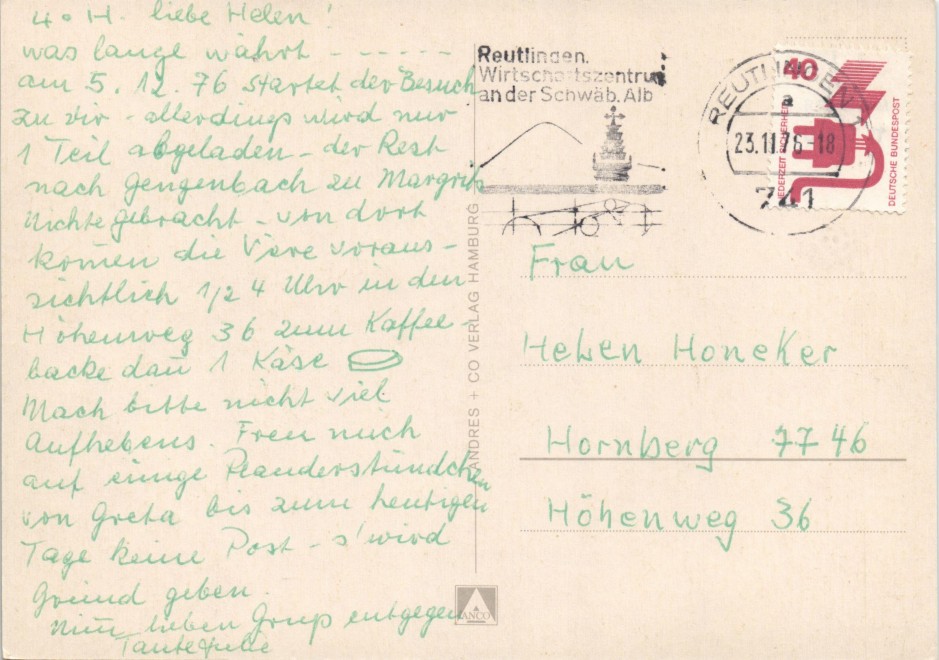 4 o H. liebe Helen!
was lange währt - - - - - -
am 5. 12. 76 startet der Besuch
zu dir - allerdings wird nur
1 Teil abgeladen - der Rest
nach Gengenbach zu Margrits
Nichte gebracht - von dort
kom̄en die Viere voraus-
sichtlich 1/2 4 Uhr in den
Höhenweg 36 zum Kaffee -
backe dan̄ 1 Käse
Mach bitte nicht viel
Aufhebens. Freu mich
auf einige Plauderstündchen
von Greta bis zum heutigen
Tage keine Post - s'wird
Grund geben.
Nim̄ lieben Gruß entgegen
Tante
Reutlingen.
Wirtschaftszentrum
an der Schwäb. Alb
REUTLINGEN
a
23.11.76-18
741
40
JEDERZEIT SICHERHEIT
DEUTSCHE BUNDESPOST
ANDRES + CO VERLAG HAMBURG
ANCO
Frau
Helen Honeker
Hornberg 7746
Höhenweg 36